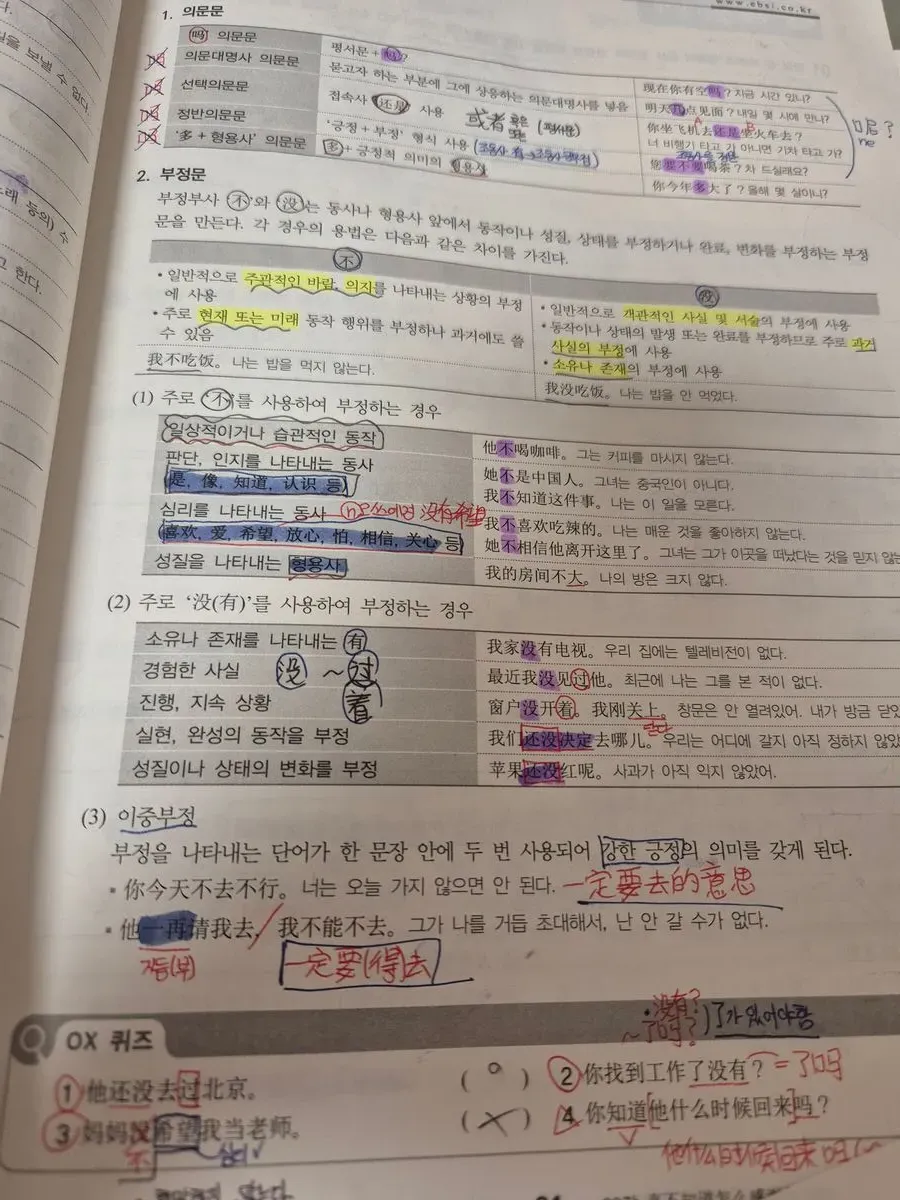 www.ebsi.co.kr
1. 의문문
吗 의문문 평서문 + 吗? 现在你有空吗? 지금 시간 있니?
의문대명사 의문문 묻고자 하는 부분에 그에 상응하는 의문대명사를 넣음 明天几点见面? 내일 몇 시에 만나?
선택의문문 접속사 还是 사용 或者 你坐飞机去还是坐火车去?
너 비행기 타고 가 아니면 기차 타고 가?
정반의문문 '긍정 + 부정' 형식 사용 您要不要喝茶? 차 드실래요?
'多 + 형용사' 의문문 多 + 긍정적 의미의 형용사 你今年多大了? 올해 몇 살이니?
呢?
ne
2. 부정문
부정부사 不와 没는 동사나 형용사 앞에서 동작이나 성질, 상태를 부정하거나 완료, 변화를 부정하는 부정
문을 만든다. 각 경우의 용법은 다음과 같은 차이를 가진다.
不
• 일반적으로 주관적인 바람, 의지를 나타내는 상황의 부정
에 사용
• 주로 현재 또는 미래 동작 행위를 부정하나 과거에도 쓸
수 있음
我不吃饭。 나는 밥을 먹지 않는다.
没
• 일반적으로 객관적인 사실 및 서술의 부정에 사용
• 동작이나 상태의 발생 또는 완료를 부정하므로 주로 과거
사실의 부정에 사용
• 소유나 존재의 부정에 사용
我没吃饭。 나는 밥을 안 먹었다.
(1) 주로 '不'를 사용하여 부정하는 경우
일상적이거나 습관적인 동작 他不喝咖啡。 그는 커피를 마시지 않는다.
판단, 인지를 나타내는 동사 她不是中国人。 그녀는 중국인이 아니다.
是, 像, 知道, 认识 등 我不知道这件事。 나는 이 일을 모른다.
심리를 나타내는 동사 没有希望 我不喜欢吃辣的。 나는 매운 것을 좋아하지 않는다.
喜欢, 爱, 希望, 放心, 怕, 相信, 关心 등 她不相信他离开这里了。 그녀는 그가 이곳을 떠났다는 것을 믿지 않는
성질을 나타내는 형용사 我的房间不大。 나의 방은 크지 않다.
(2) 주로 '没(有)'를 사용하여 부정하는 경우
소유나 존재를 나타내는 有 我家没有电视。 우리 집에는 텔레비전이 없다.
경험한 사실 没 ~ 过 最近我没见过他。 최근에 나는 그를 본 적이 없다.
진행, 지속 상황 着 窗户没开着。我刚关上。 창문은 안 열려있어. 내가 방금 닫았
실현, 완성의 동작을 부정 我们还没决定去哪儿。 우리는 어디에 갈지 아직 정하지 않았
성질이나 상태의 변화를 부정 苹果还没红呢。 사과가 아직 익지 않았어.
(3) 이중부정
부정을 나타내는 단어가 한 문장 안에 두 번 사용되어 강한 긍정의 의미를 갖게 된다.
• 你今天不去不行。 너는 오늘 가지 않으면 안 된다. 一定要去的意思
• 他一再请我去, 我不能不去。 그가 나를 거듭 초대해서, 난 안 갈 수가 없다.
거듭(부) 一定要(得)去
• 没有?
~了吗? ) 了가 있어야함
OX 퀴즈
1 他还没去过北京。 ( O )
2 你找到工作了没有? = 了吗
3 妈妈没希望我当老师。 ( X )
不
4 你知道他什么时候回来吗?